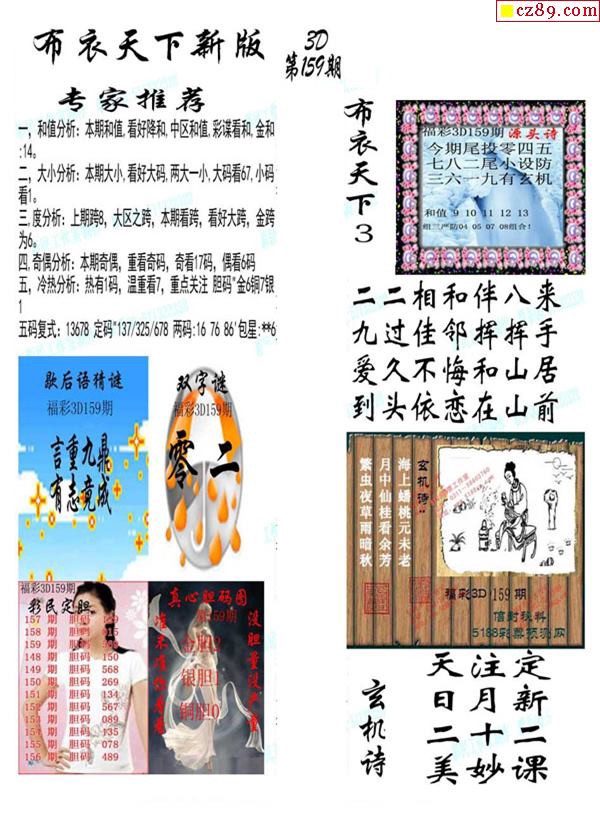 cz89.com
布衣天下新版
3D
第159期
专家推荐
一，和值分析：本期和值，看好降和，中区和值，彩谍看和，金和
:14。
二，大小分析：本期大小，看好大码，两大一小，大码看67，小码
看1。
三，度分析：上期跨8，大区之跨，本期看跨，看好大跨，金跨
为6。
四，奇偶分析：本期奇偶，重看奇码，奇看17码，偶看6码
五，冷热分析：热有1码，温重看7，重点关注 胆码"金6铜7银
1
五码复式：13678 定码"137/325/678 两码:16 76 86'包星:**6
布衣天下3
福彩3D159期 源头诗
今期尾投零四五
七八二尾小设防
三六一九有玄机
和值 9 10 11 12 13
组三严防04 05 07 08组合!
二二相和伴八来
九过佳邻挥挥手
爱久不悔和山居
到头依恋在山前
歇后语猜谜
福彩3D159期
言重九鼎
有志竟成
双字谜
福彩3D159期
零二
福彩3D159期
彩民定胆
157 期 胆码
158 期 胆码 015
159 期 胆码
148 期 胆码 150
149 期 胆码 568
150 期 胆码 269
151 期 胆码 134
152 期 胆码 567
153 期 胆码 089
154 期 胆码 135
155 期 胆码 078
156 期 胆码 489
真心胆码图
159期
金胆2
银胆1
铜胆0
没胆量没产量
玄机诗
海上蟠桃元未老
月中仙桂看余芳
繁虫夜草雨暗秋
福彩3D 159 期
信封秘料
5188彩票预测网
玄机诗
天注定
日月新
二十二
美妙课